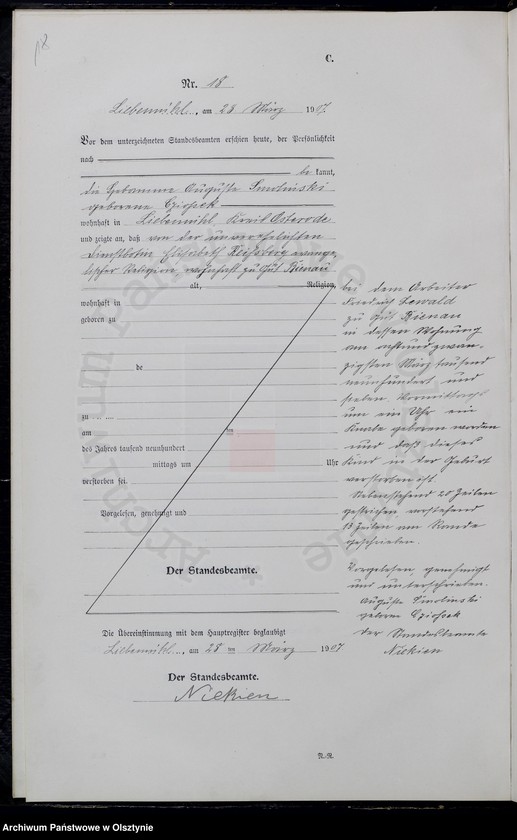 18
C.
Nr. 18
Liebemühl, am 28 März 1907
Vor dem unterzeichneten Standesbeamten erschien heute, der Persönlichkeit
nach
be kannt,
die Hebamme Auguste Smolinski
geborene
wohnhaft in Liebemühl, Kreis Osterode
und zeigte an, daß von der unverehelichten
Dienstbotin Elisabeth Reißberg evange-
lischer Religion, wohnhaft zu Gut Bienau
alt, Religion,
wohnhaft in
geboren zu
de
zu
am im
des Jahres tausend neunhundert
mittags um Uhr
verstorben sei.
Vorgelesen, genehmigt und
Der Standesbeamte.
bei dem Arbeiter
Friedrich Lewald
zu Gut Bienau
in dessen Wohnung
am achtundzwan-
zigsten März tausend
neunhundert und
sieben Vormittags
um ein Uhr ein
Knabe geboren worden
und daß dieses
Kind in der Geburt
verstorben ist.
Nebenstehend 20 Zeilen
gestrichen vorstehend
13 Zeilen am Rande
geschrieben.
Vorgelesen, genehmigt
und unterschrieben.
Auguste Smolinski
geborene
Der Standesbeamte
Niekien
Die Übereinstimmung mit dem Hauptregister beglaubigt
Liebemühl, am 28 ten März 1907
Der Standesbeamte.
Niekien
N.-R.
Archiwum Państwowe w Olsztynie